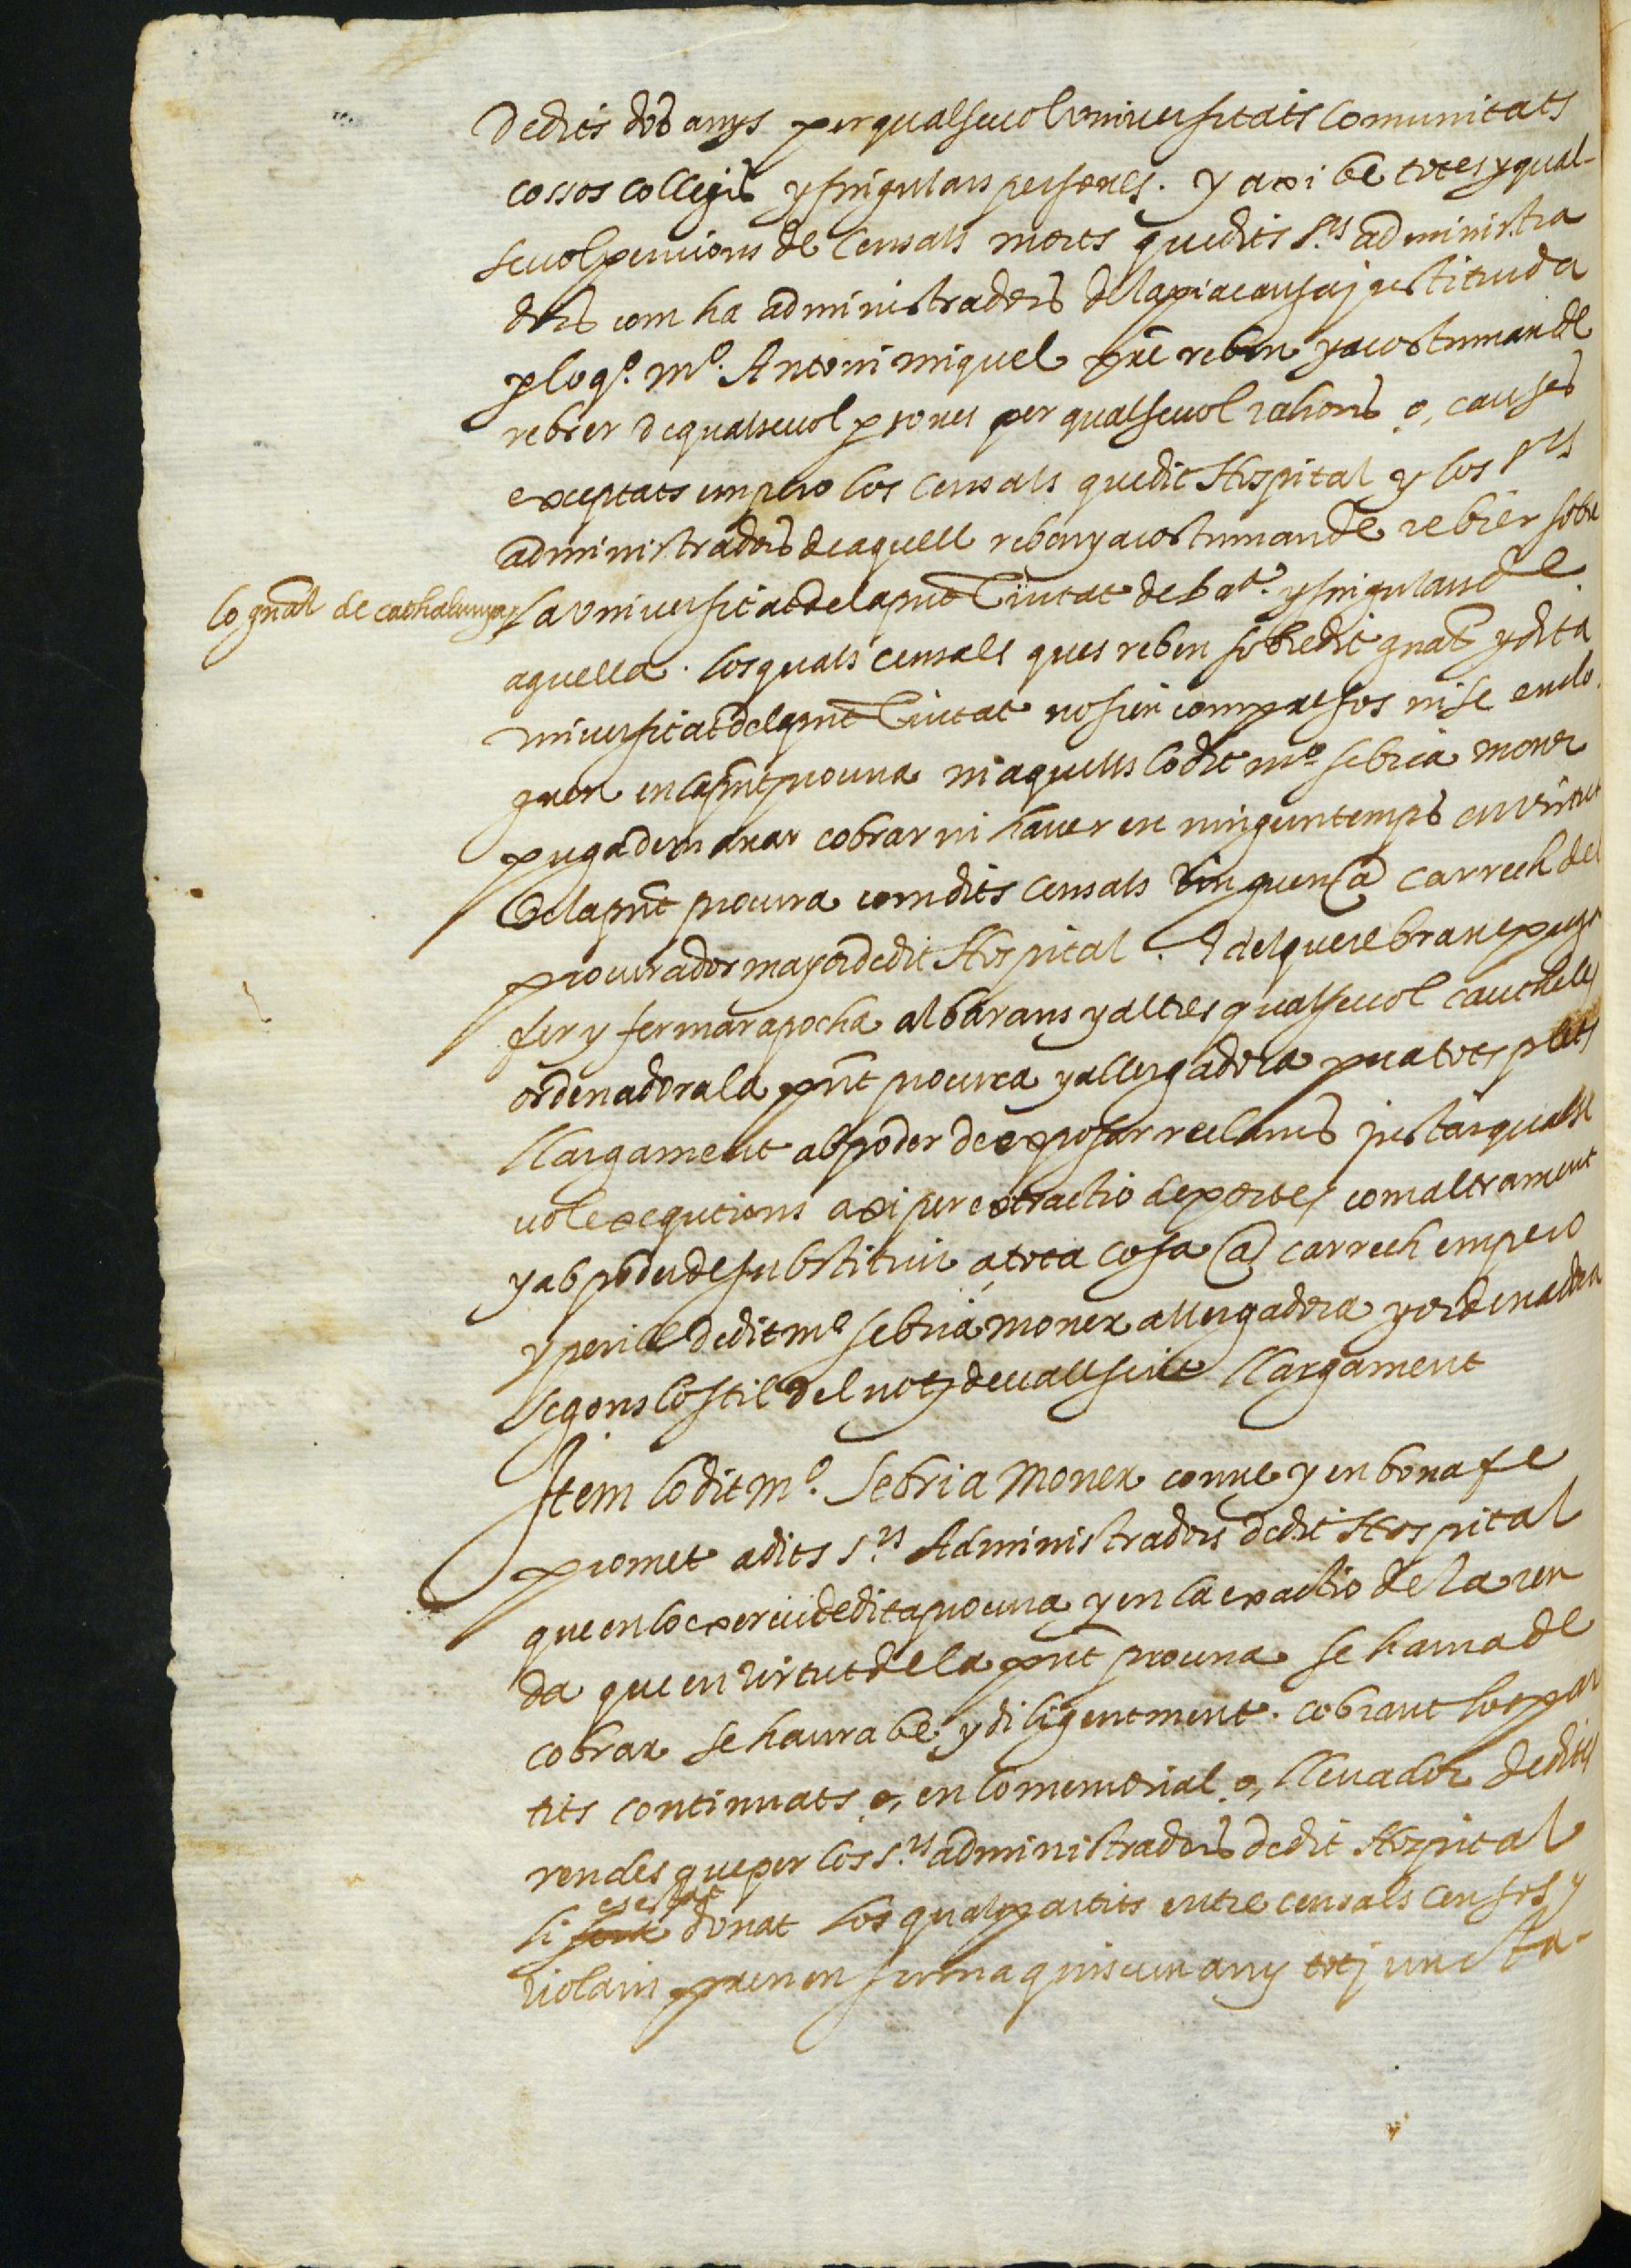 dedits dos anys per qualsevol universitats comunitats
cossos collegis y singulars persones. y axi be totes y qual-
sevol pencions de censals morts que dits s.rs administra
dors com ha administradors de la pia causa justituida
p lo q.º m.º Antoni miquel pre reben y acostuman de
rebrer de qualsevol psones per qualsevol rahons o, causes
exceptats empero los censals que dit Hospital y los s.rs
administradors de aquell reben y acostuman de rebrer sobre
lo gnal de cathalunya y
la universitat de la pnt Ciutat de bar.ª y singulars de
aquella. los quals censals ques reben sobre dit gnal y dita
universitat de la pnt Ciutat no sien compresos ni se enclo
guen en la pnt procura ni aquells lo dit m.º sebria moner
puga demanar cobrar ni haver en ningun temps en virtut
de la pnt procura com dits censals vinguen a carrech del
procurador mayor de dit Hospital. Y del que cobrara puga
fer y fermar apocha albarans y altres qualsevol cautheles
ordenadora la pnt procura y allergadora pera tots plets
llargament ab poder de exposar reclams justar qualse
vol exequcions axi per extractio de portes com altrament
y ab poder de substituir a tota cosa a carrech empero
y perill de dit m.º sebria moner allergadora y ordenadora
segons lo stil del not.ʳ devall scrit llargament
Item lo dit m.º Sebria Moner conve y en bona fe
promet a dits s.rs Administradors de dit Hospital
que en lo exercici de dita procura y en la exactio de la ren
da que en virtut de la pnt procura se haura de
cobrar se haura be, y diligentment. cobrant los par
tits continuats o, en lo memorial o, llevador de dites
rendes que per los s.rs administradors de dit Hospital
es estat
li sera donat los quals partits entre censals censos y
violaris prenen suma quiscun any tot junct a-